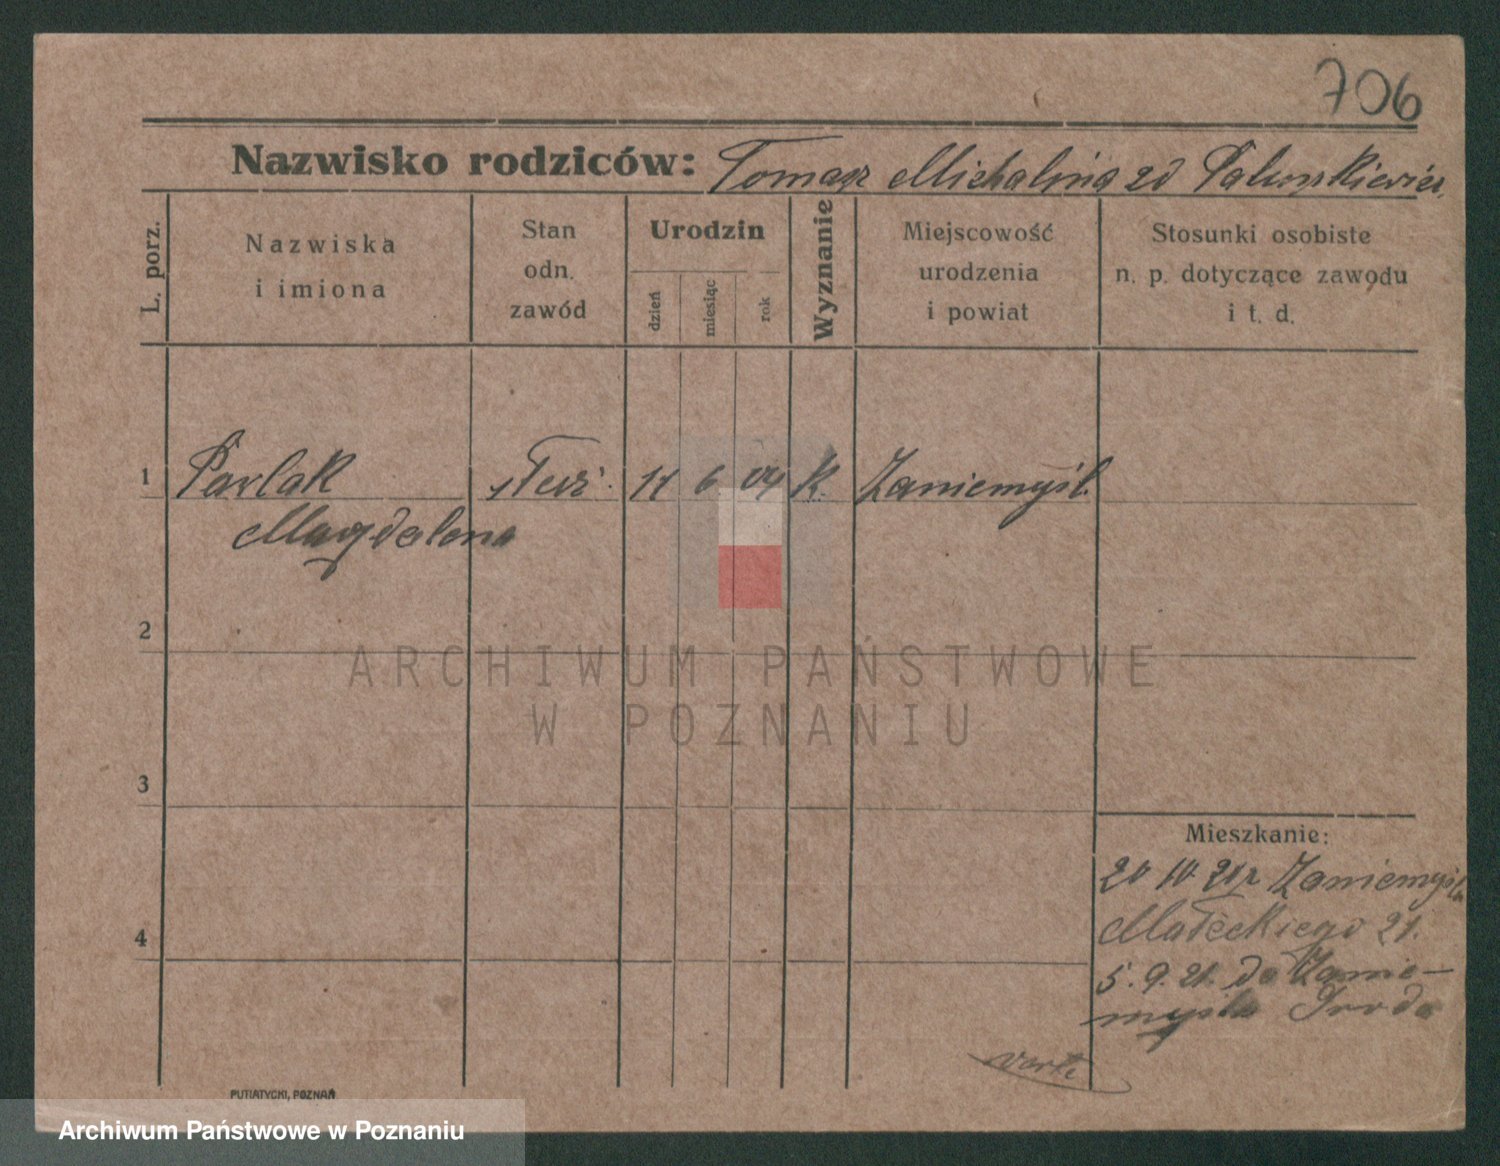 706
Nazwisko rodziców: Tomasz Michalina zd
L. porz.
Nazwiska
i imiona
Stan
odn.
zawód
Urodzin
dzień
miesiąc
rok
Wyznanie
Miejscowość
urodzenia
i powiat
Stosunki osobiste
n. p. dotyczące zawodu
i t. d.
1 Pawlak 6 04 K. Zaniemyśl.
Magdalena
2
ARCHIWUM PAŃSTWOWE
W POZNANIU
3
Mieszkanie:
20 10 21 r Zaniemyśla
Małeckiego 21.
4
5. 9. 21. do Zanie-
myśla Środa
verte
PUTIATYCKI, POZNAŃ
Archiwum Państwowe w Poznaniu